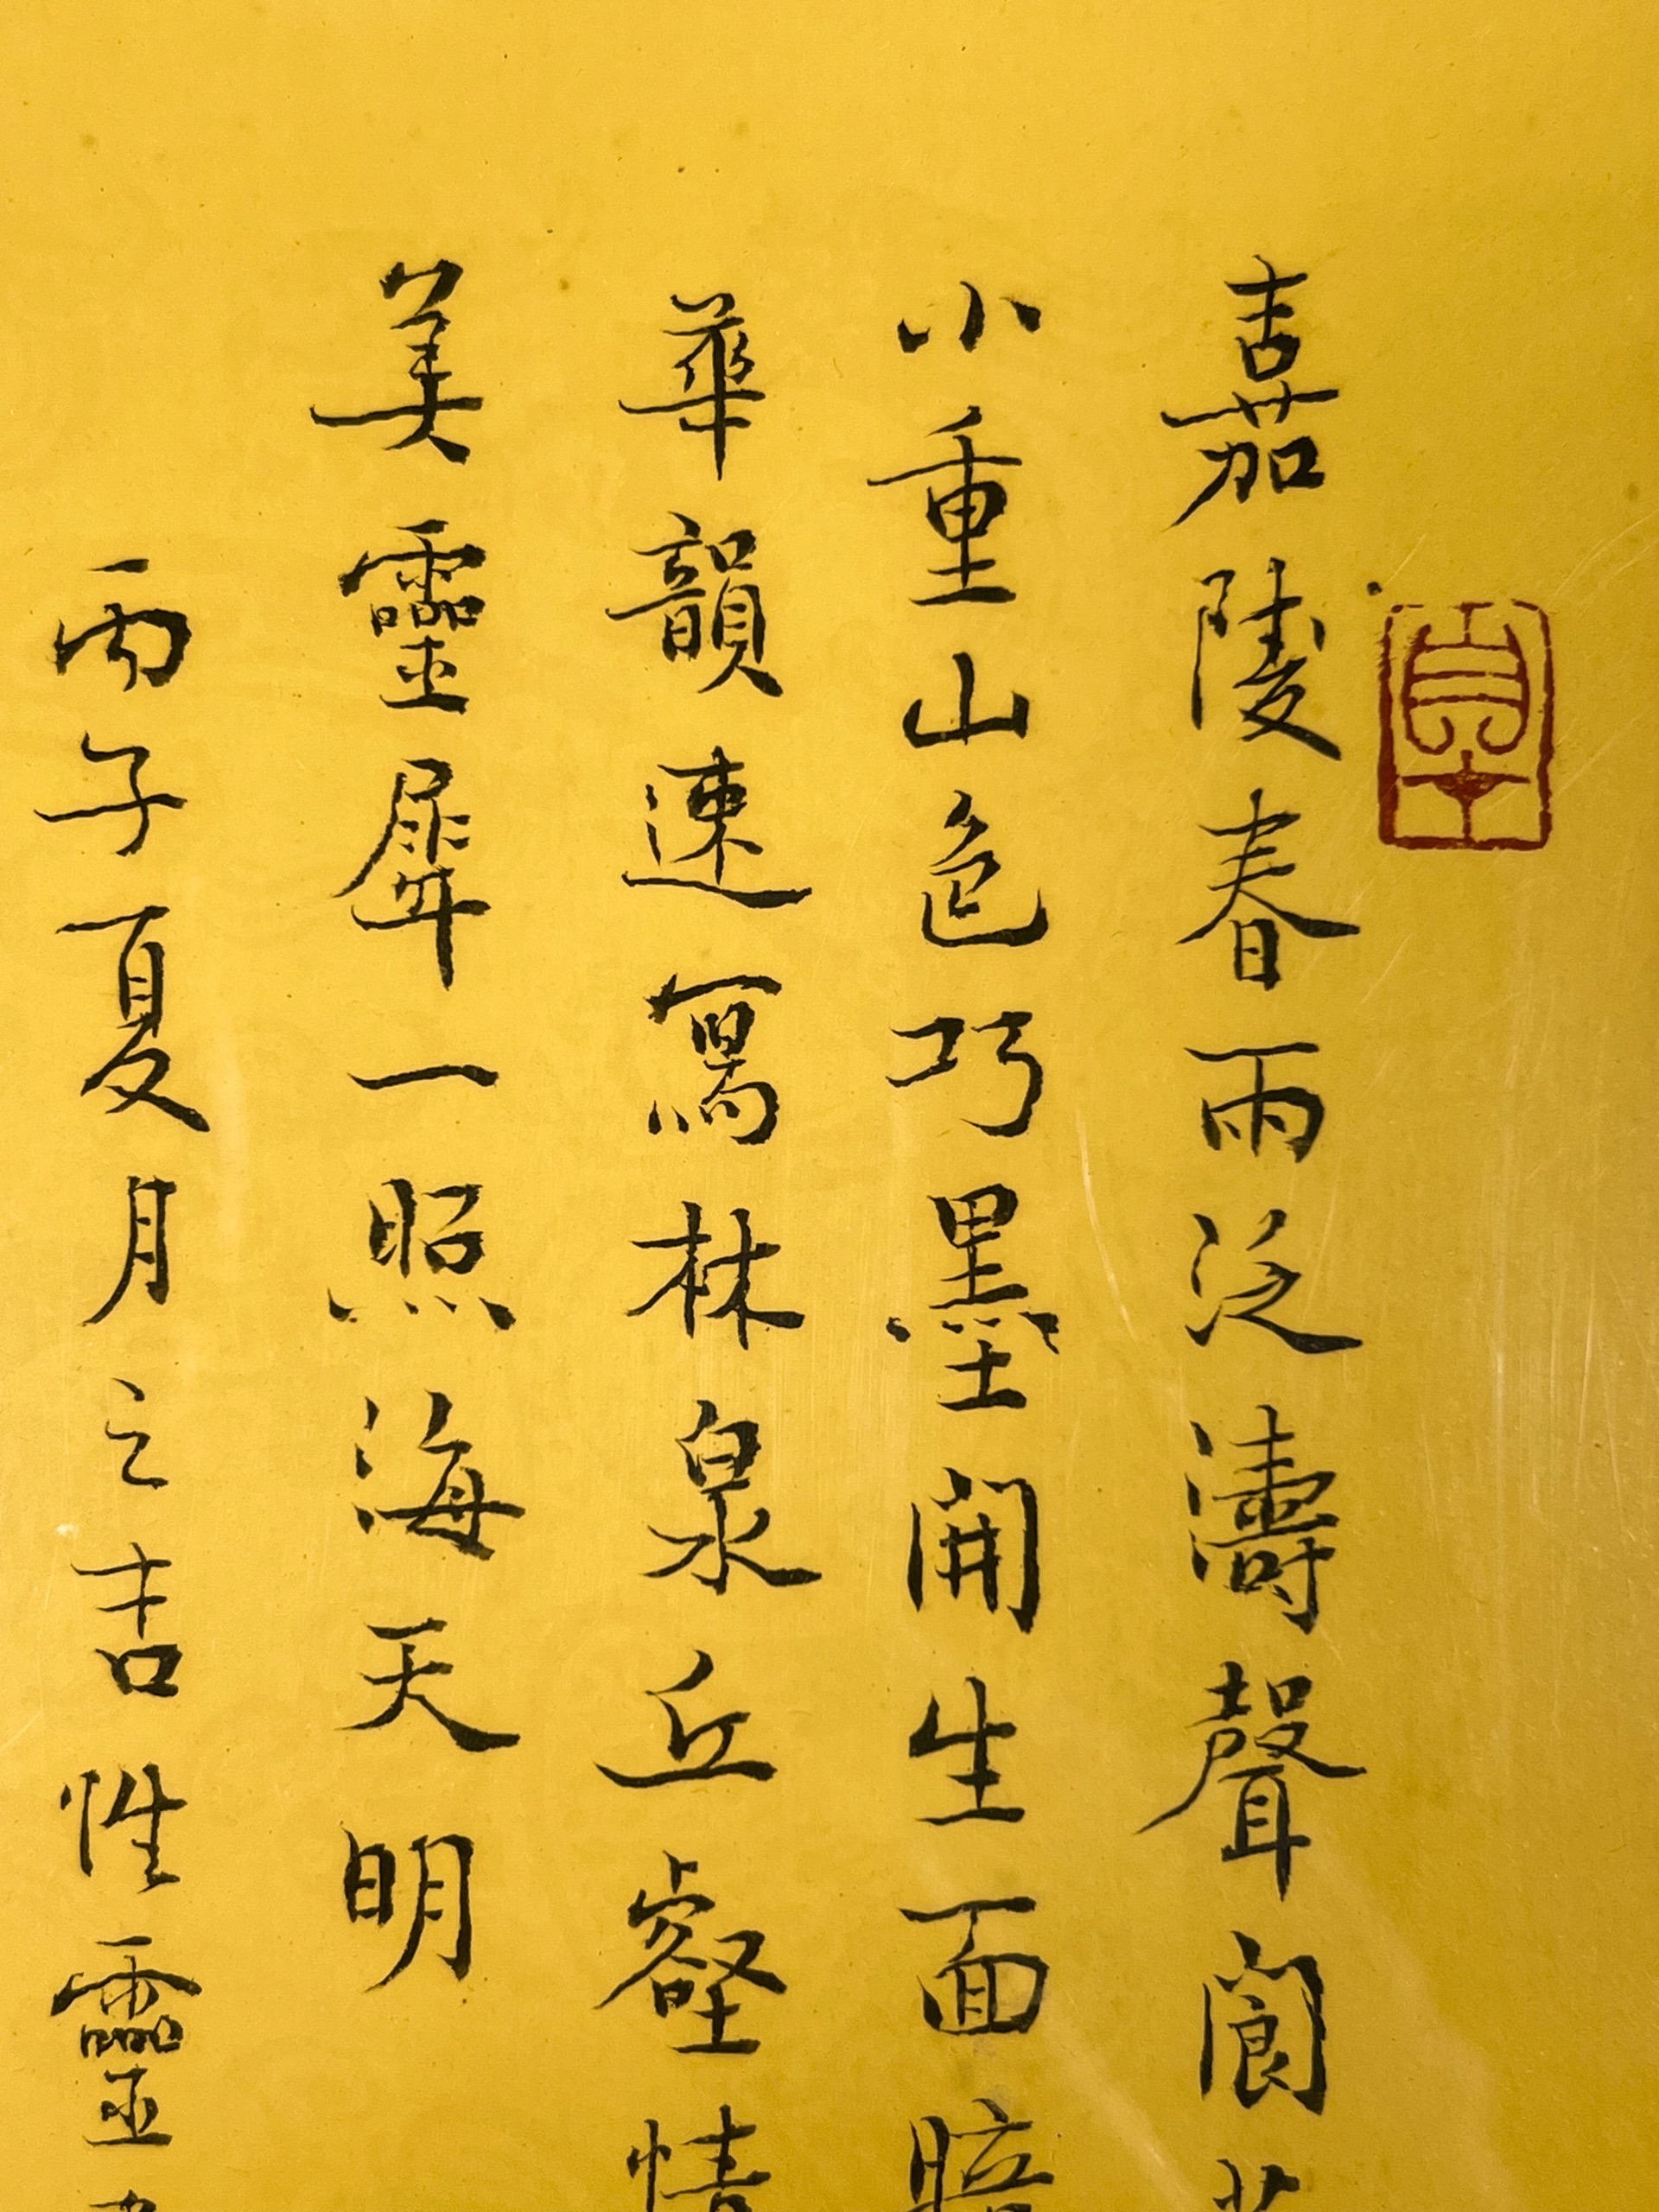 嘉陵春雨泛濤聲閬
小重山色巧墨開生面
華韻速寫林泉丘壑情
美靈犀一照海天明
丙子夏月之吉性靈